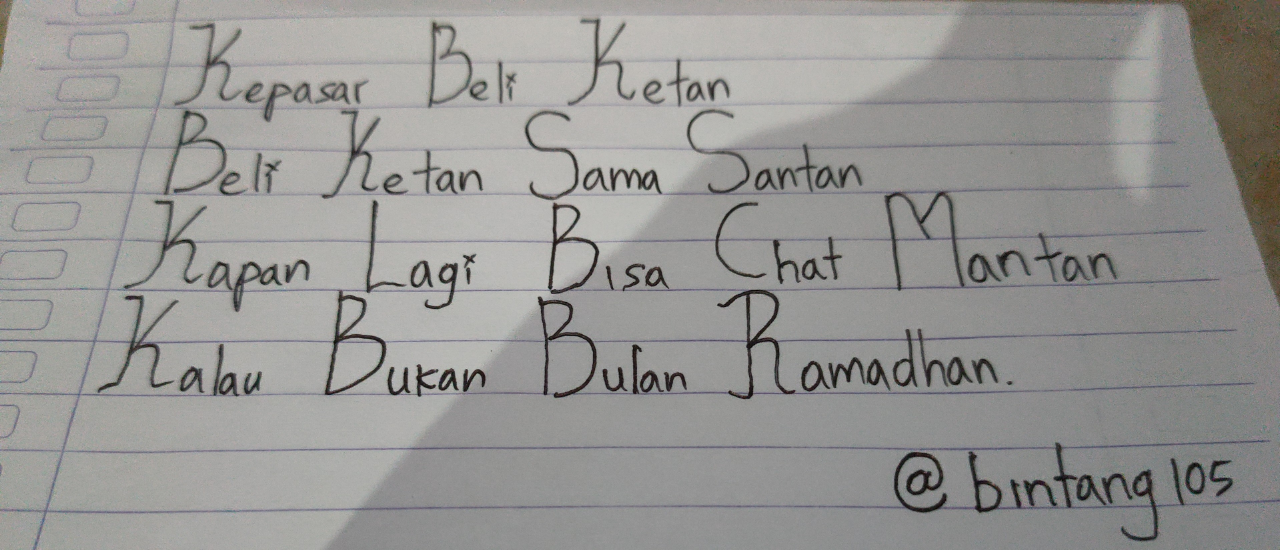 Kepasar Beli Ketan
Beli Ketan Sama Santan
Kapan Lagi Bisa Chat Mantan
Kalau Bukan Bulan Ramadhan.
@bintang105